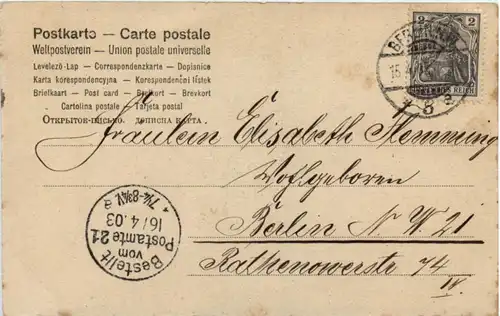 Postkarte — Carte postale
Weltpostverein — Union postale universelle
Levelező-Lap — Correspondenzkarte — Dopisnice
Karta korespondencyjna — Korespondenční lístek
Briefkaart — Post card — Brefkort — Brevkort
Cartolina postale — Tarjeta postal
Открытое-письмо. дописна карта.
2 2
DEUTSCHES REICH
BERLIN N.W.
15.
* 8 a
Fräulein Elisabeth Flemming
Wohlgeboren
Berlin N W 21
Rathenowerstr 74
IV.
Bestellt
vom
Postamte 21
16/4.03
7¼-8¾V.